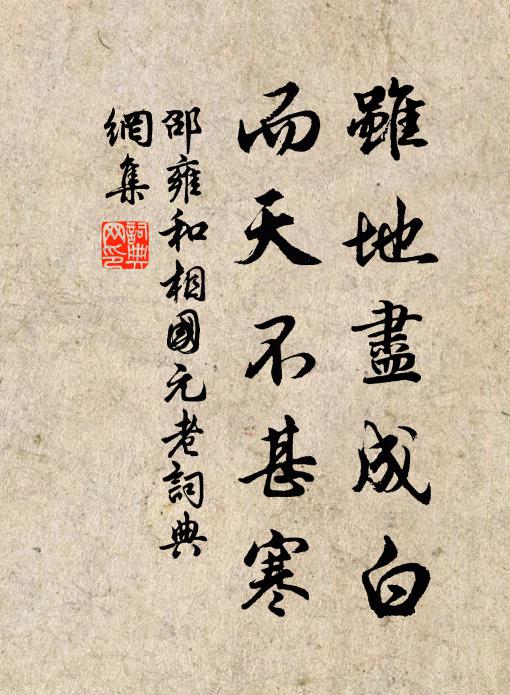 雖地盡成白
而天不甚寒
邵雍和相國元老詞典
網集
詞典
网印